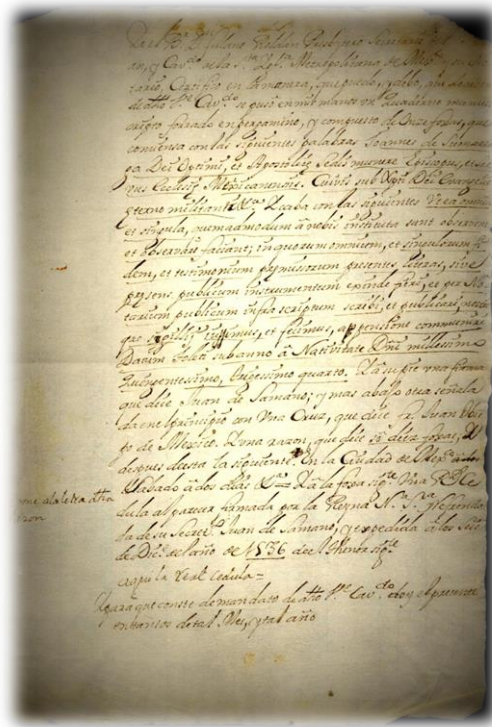 Presbytero Secretario
an, y Cav.do de la S.ta Igl.a Metropolitana de Mex.co
tario, Certifico en la manera, que puedo, y debo, que de
de dho V.e Cav.do se puso en mis manos un Quaderno manu
scripto forrado en pergamino, y compuesto de foxas, que
comiensa con las siguientes palabras Joannes de Sumarra
ga Dei Optimi, et Apostolicę Sedis munere Episcopus, et
rus Ecclesię Mexicanensis. Cuivis sub Xpti Dei Evangelio
ęterno militanti &.ca Y caba con las siguientes Vt ea omnia
et singula, quemadmodum à nobis instituta sunt observent
et observari faciant; in quorum omnium, et singulorum fi
dem, et testimonium pręmissorum presentes literas, sive
pręsens publicum instrumentum exinde fieri, et per No
tarium publicum infra scriptum scribi, et publicari,
que sigilli, iussimus, et fecimus, appensione communiri
Datum Toleti sub anno à Nativitate Dñi millessimo
Quingentessimo, trigessimo quarto. Y à su pie una firma
que dice Juan de Samano; y mas abajo otra señala
da en el principio con Una Cruz, que dice fr. Juan Obis
po de Mexico. Y una razon, que dice va diez foxas, Y
despues de esta la siguiente. En la Ciudad de Mex.co
Y à la foxa sig.te Una R.l Ce
dula al parecer firmada por la Reyna N.a S.ra y refrenda
da de su Secret.o Juan de Samano, y expedida à los siete
de Diz.e del año de 1536 del thenor sig.te
aqui la Real cedula =
Y para que conste de mandato de dho V.e Cav.do doy el presente
en tantos de tal Mes, y tal año